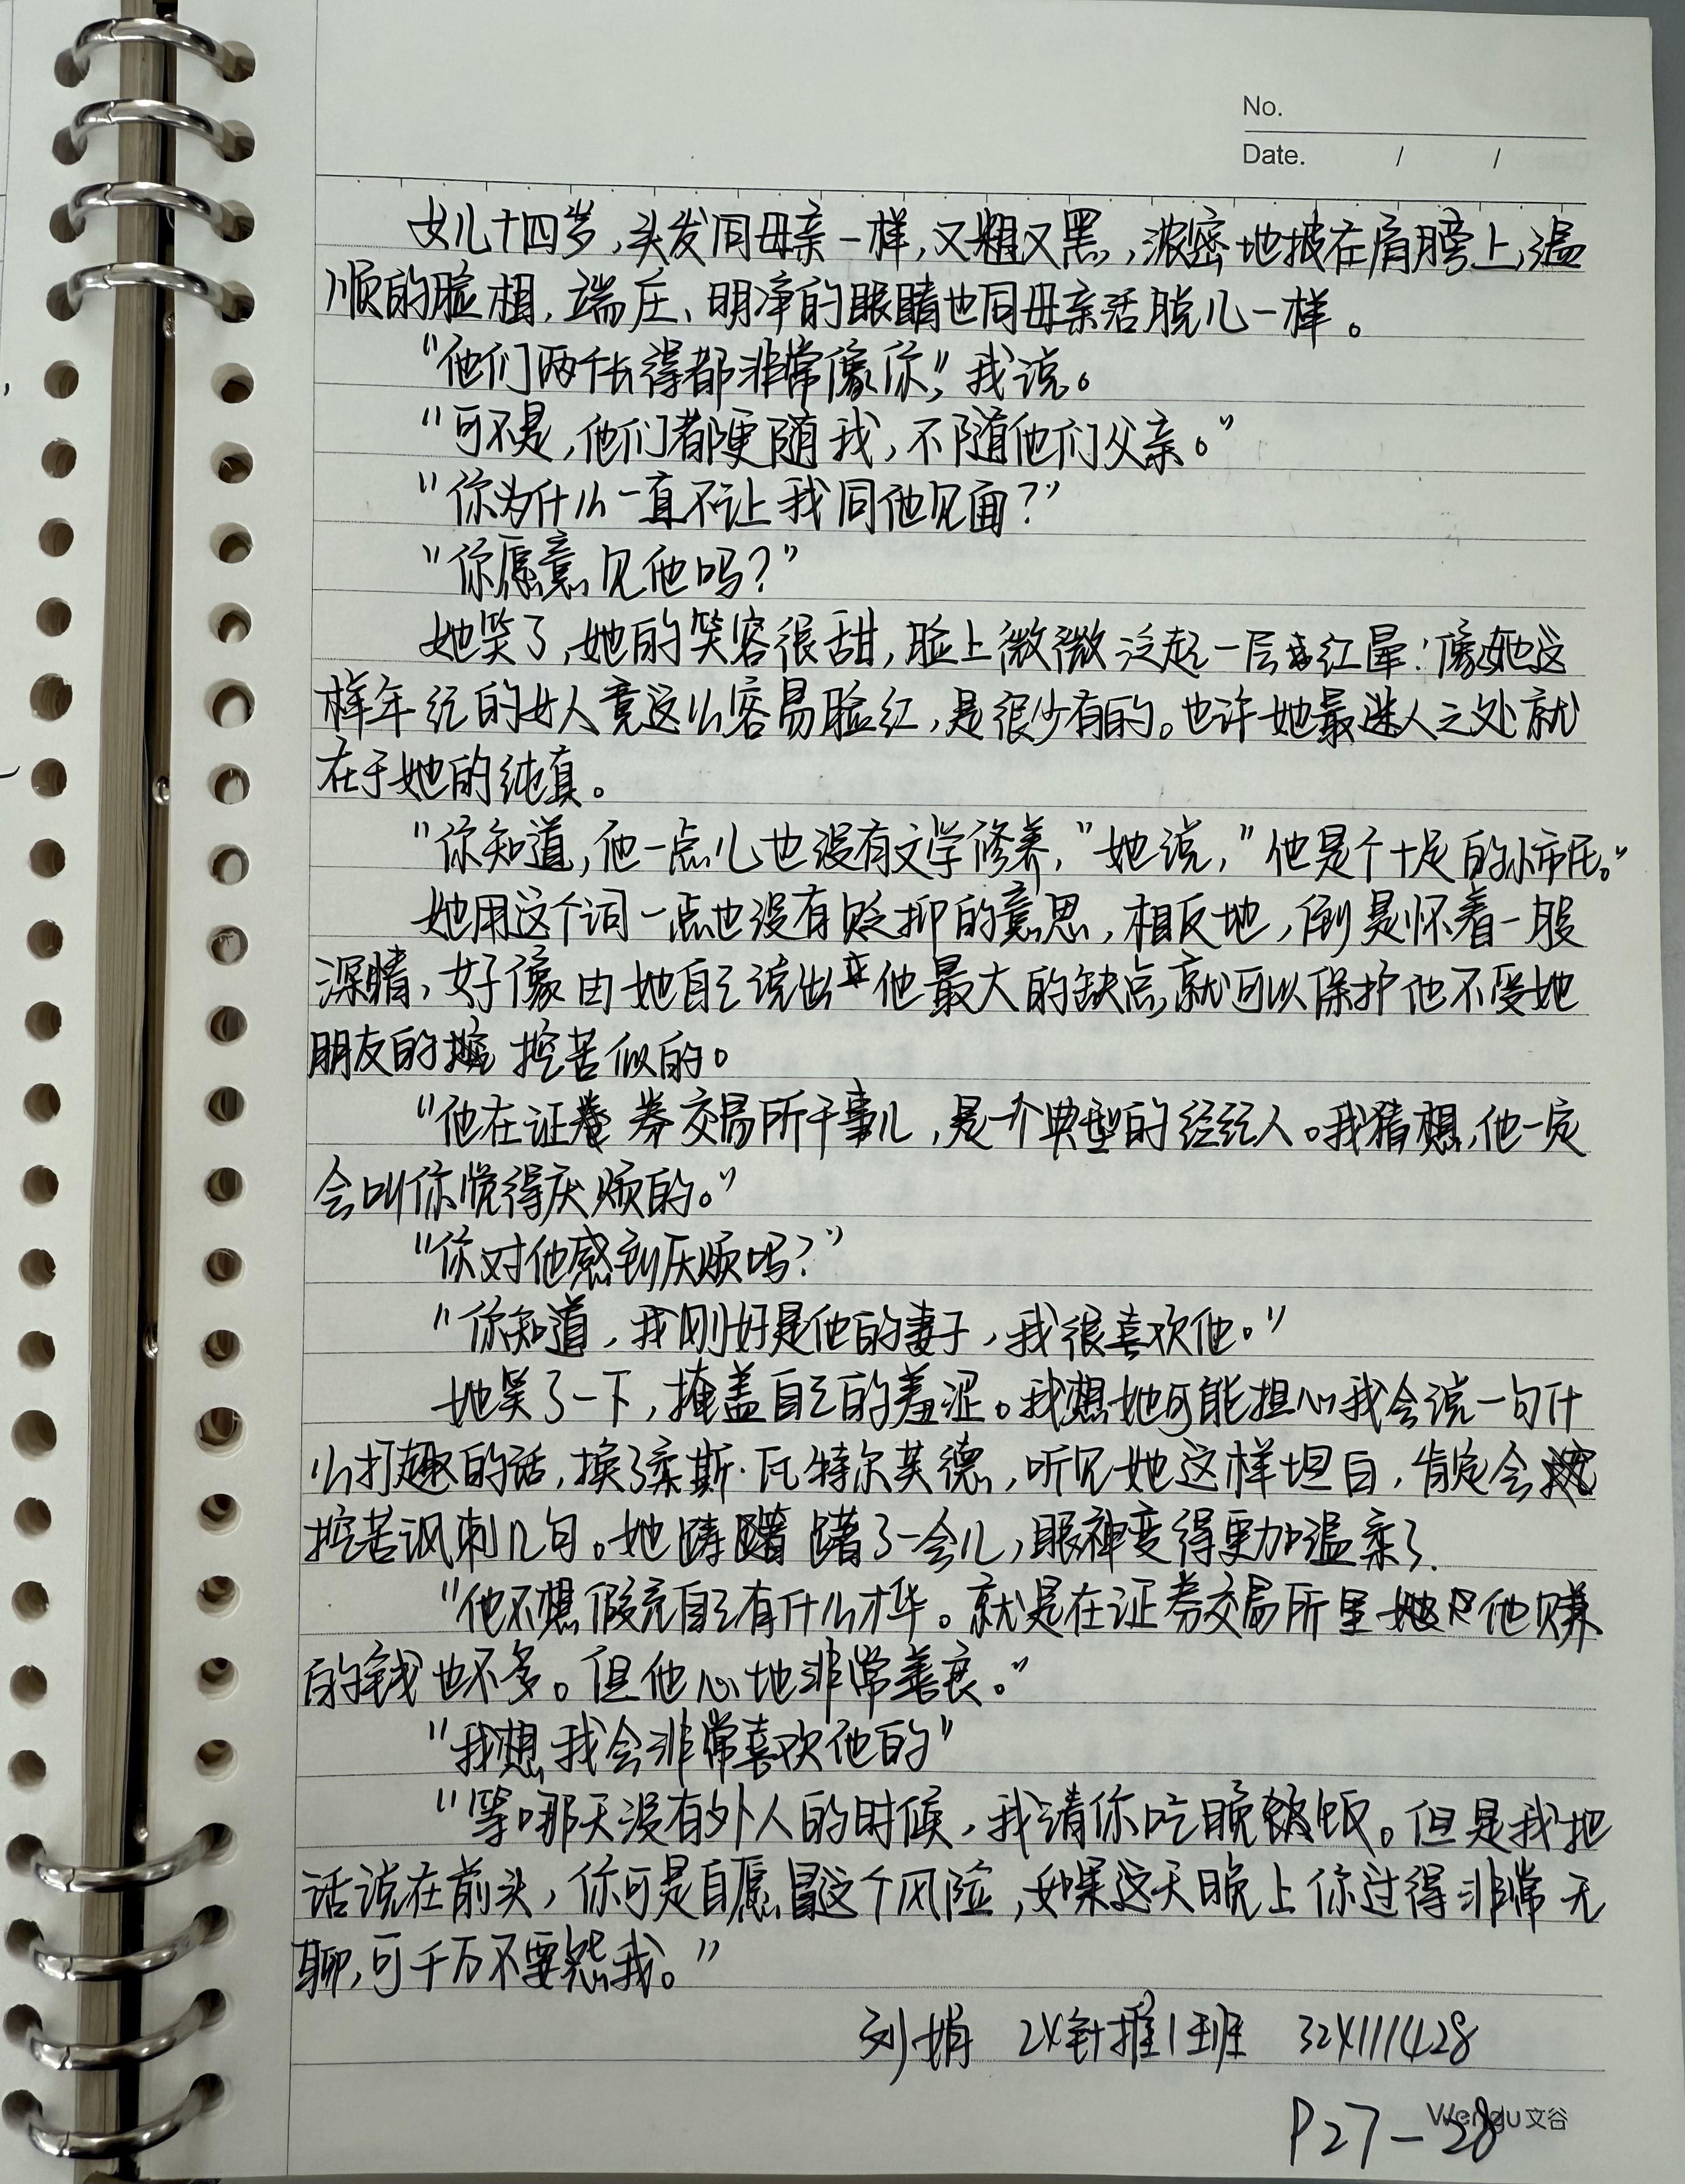 No.
Date. / /
女儿十四岁,头发同母亲一样,又粗又黑,浓密地披在肩膀上,温
顺的脸相,端庄、明净的眼睛也同母亲活脱儿一样。
“他们两个长得都非常像你”,我说。
“可不是,他们都更随我,不随他们父亲。”
“你为什么一直不让我同他见面?”
“你愿意见他吗?”
她笑了,她的笑容很甜,脸上微微泛起一层红晕:像她这
样年纪的女人竟这么容易脸红,是很少有的。也许她最迷人之处就
在于她的纯真。
“你知道,他一点儿也没有文学修养,”她说,“他是个十足的小市民。”
她用这个词一点也没有贬抑的意思,相反地,倒是怀着一股
深情,好像由她自己说出他最大的缺点,就可以保护他不受她
朋友的挖苦似的。
“他在证券交易所干事儿,是一个典型的经纪人。我猜想,他一定
会叫你觉得厌烦的。”
“你对他感到厌烦吗?”
“你知道,我刚好是他的妻子,我很喜欢他。”
她笑了一下,掩盖自己的羞涩。我想她可能担心我会说一句什
么打趣的话,换了柔斯·瓦特尔芙德,听见她这样坦白,肯定会
挖苦讽刺几句。她踌躇了一会儿,眼神变得更加温柔了.
“他不想假充自己有什么才华。就是在证券交易所里他赚
的钱也不多。但他心地非常善良。”
“我想我会非常喜欢他的”
“等哪天没有外人的时候,我请你吃晚饭。但是我把
话说在前头,你可是自愿冒这个风险,如果这天晚上你过得非常无
聊,可千万不要怨我。”
刘娟 24针推1班 324111428
Wengu文谷
P27—28